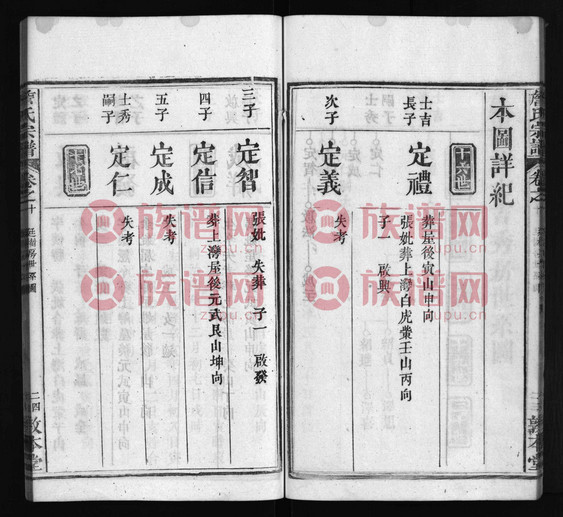 本圖詳紀
十六世
士吉
長子
定禮
葬屋後寅山申向
張妣葬上灣白虎䘨壬山丙向
子一 啟興
次子
定義
失考
詹氏宗譜
卷之十
敦本堂
三子
定智
張妣 失葬 子一 啟發
四子
定信
葬上灣屋後元武艮山坤向
五子
定成
失考
士秀
嗣子
十六世
定仁
失考
詹氏宗譜
卷之十
二四
敦本堂
族谱网
zupu.cn